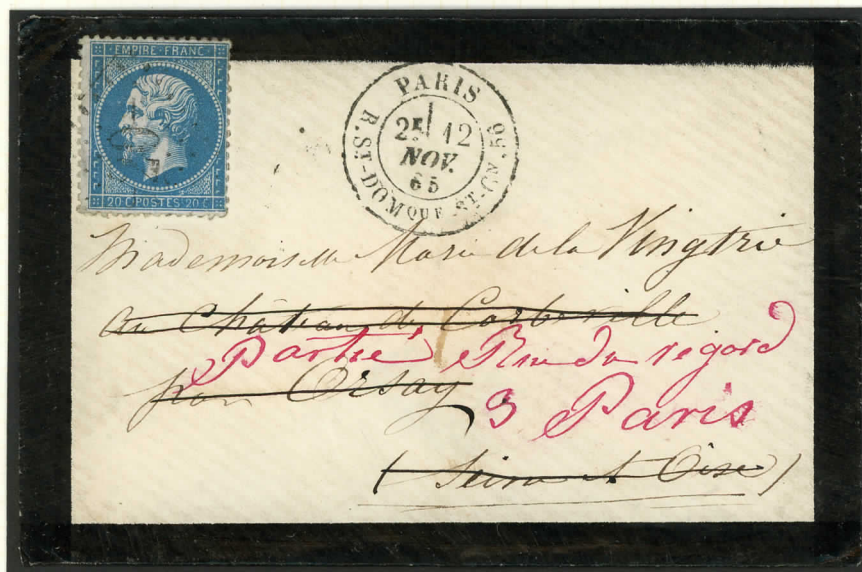 EMPIRE FRANC
20 C POSTES 20 C
PARIS
2E 12
NOV.
65
R. ST-DOMQUE ST-GN. 56
Mademoiselle Marie de la Vingtrie
au Château de Corbeville
Partie, Rue du regard
par Orsay
3 Paris
(Seine et Oise)